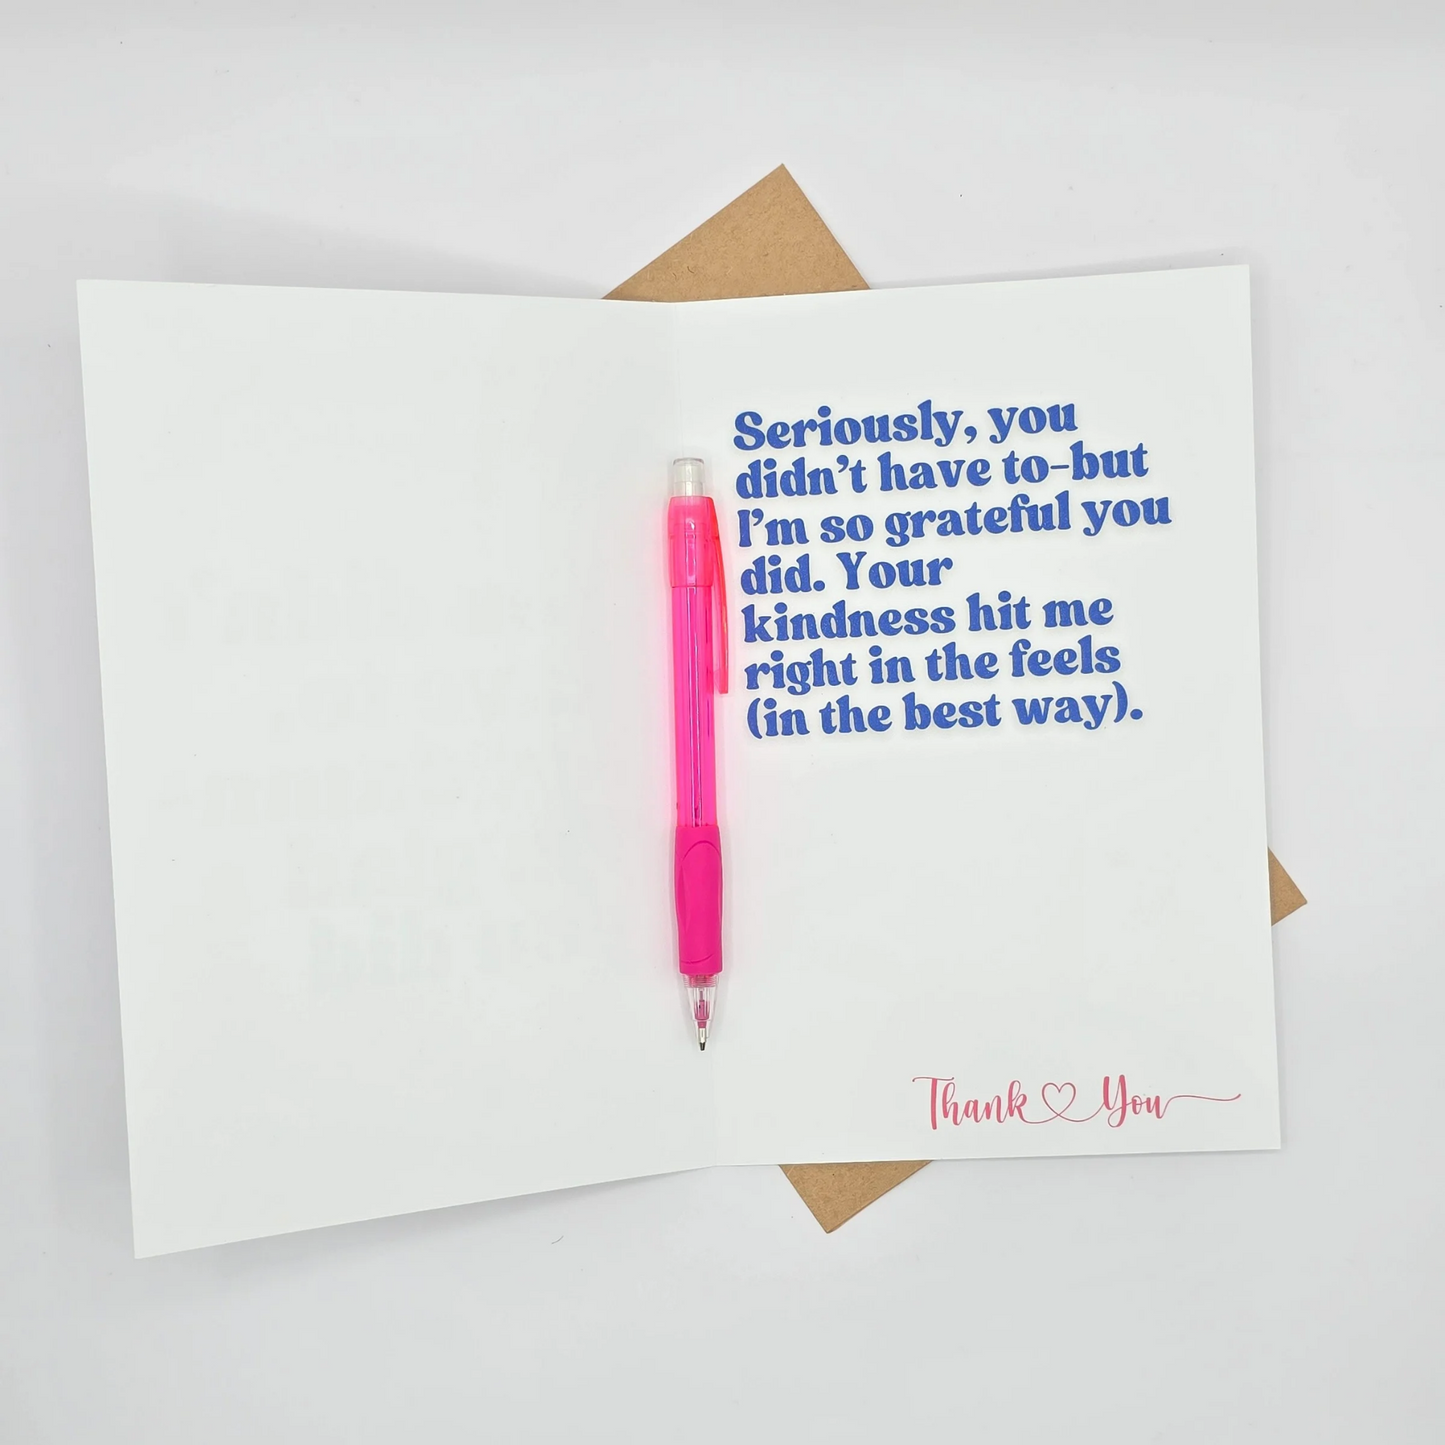 Seriously, you
didn't have to-but
I'm so grateful you
did. Your
kindness hit me
right in the feels
(in the best way).
Thank You